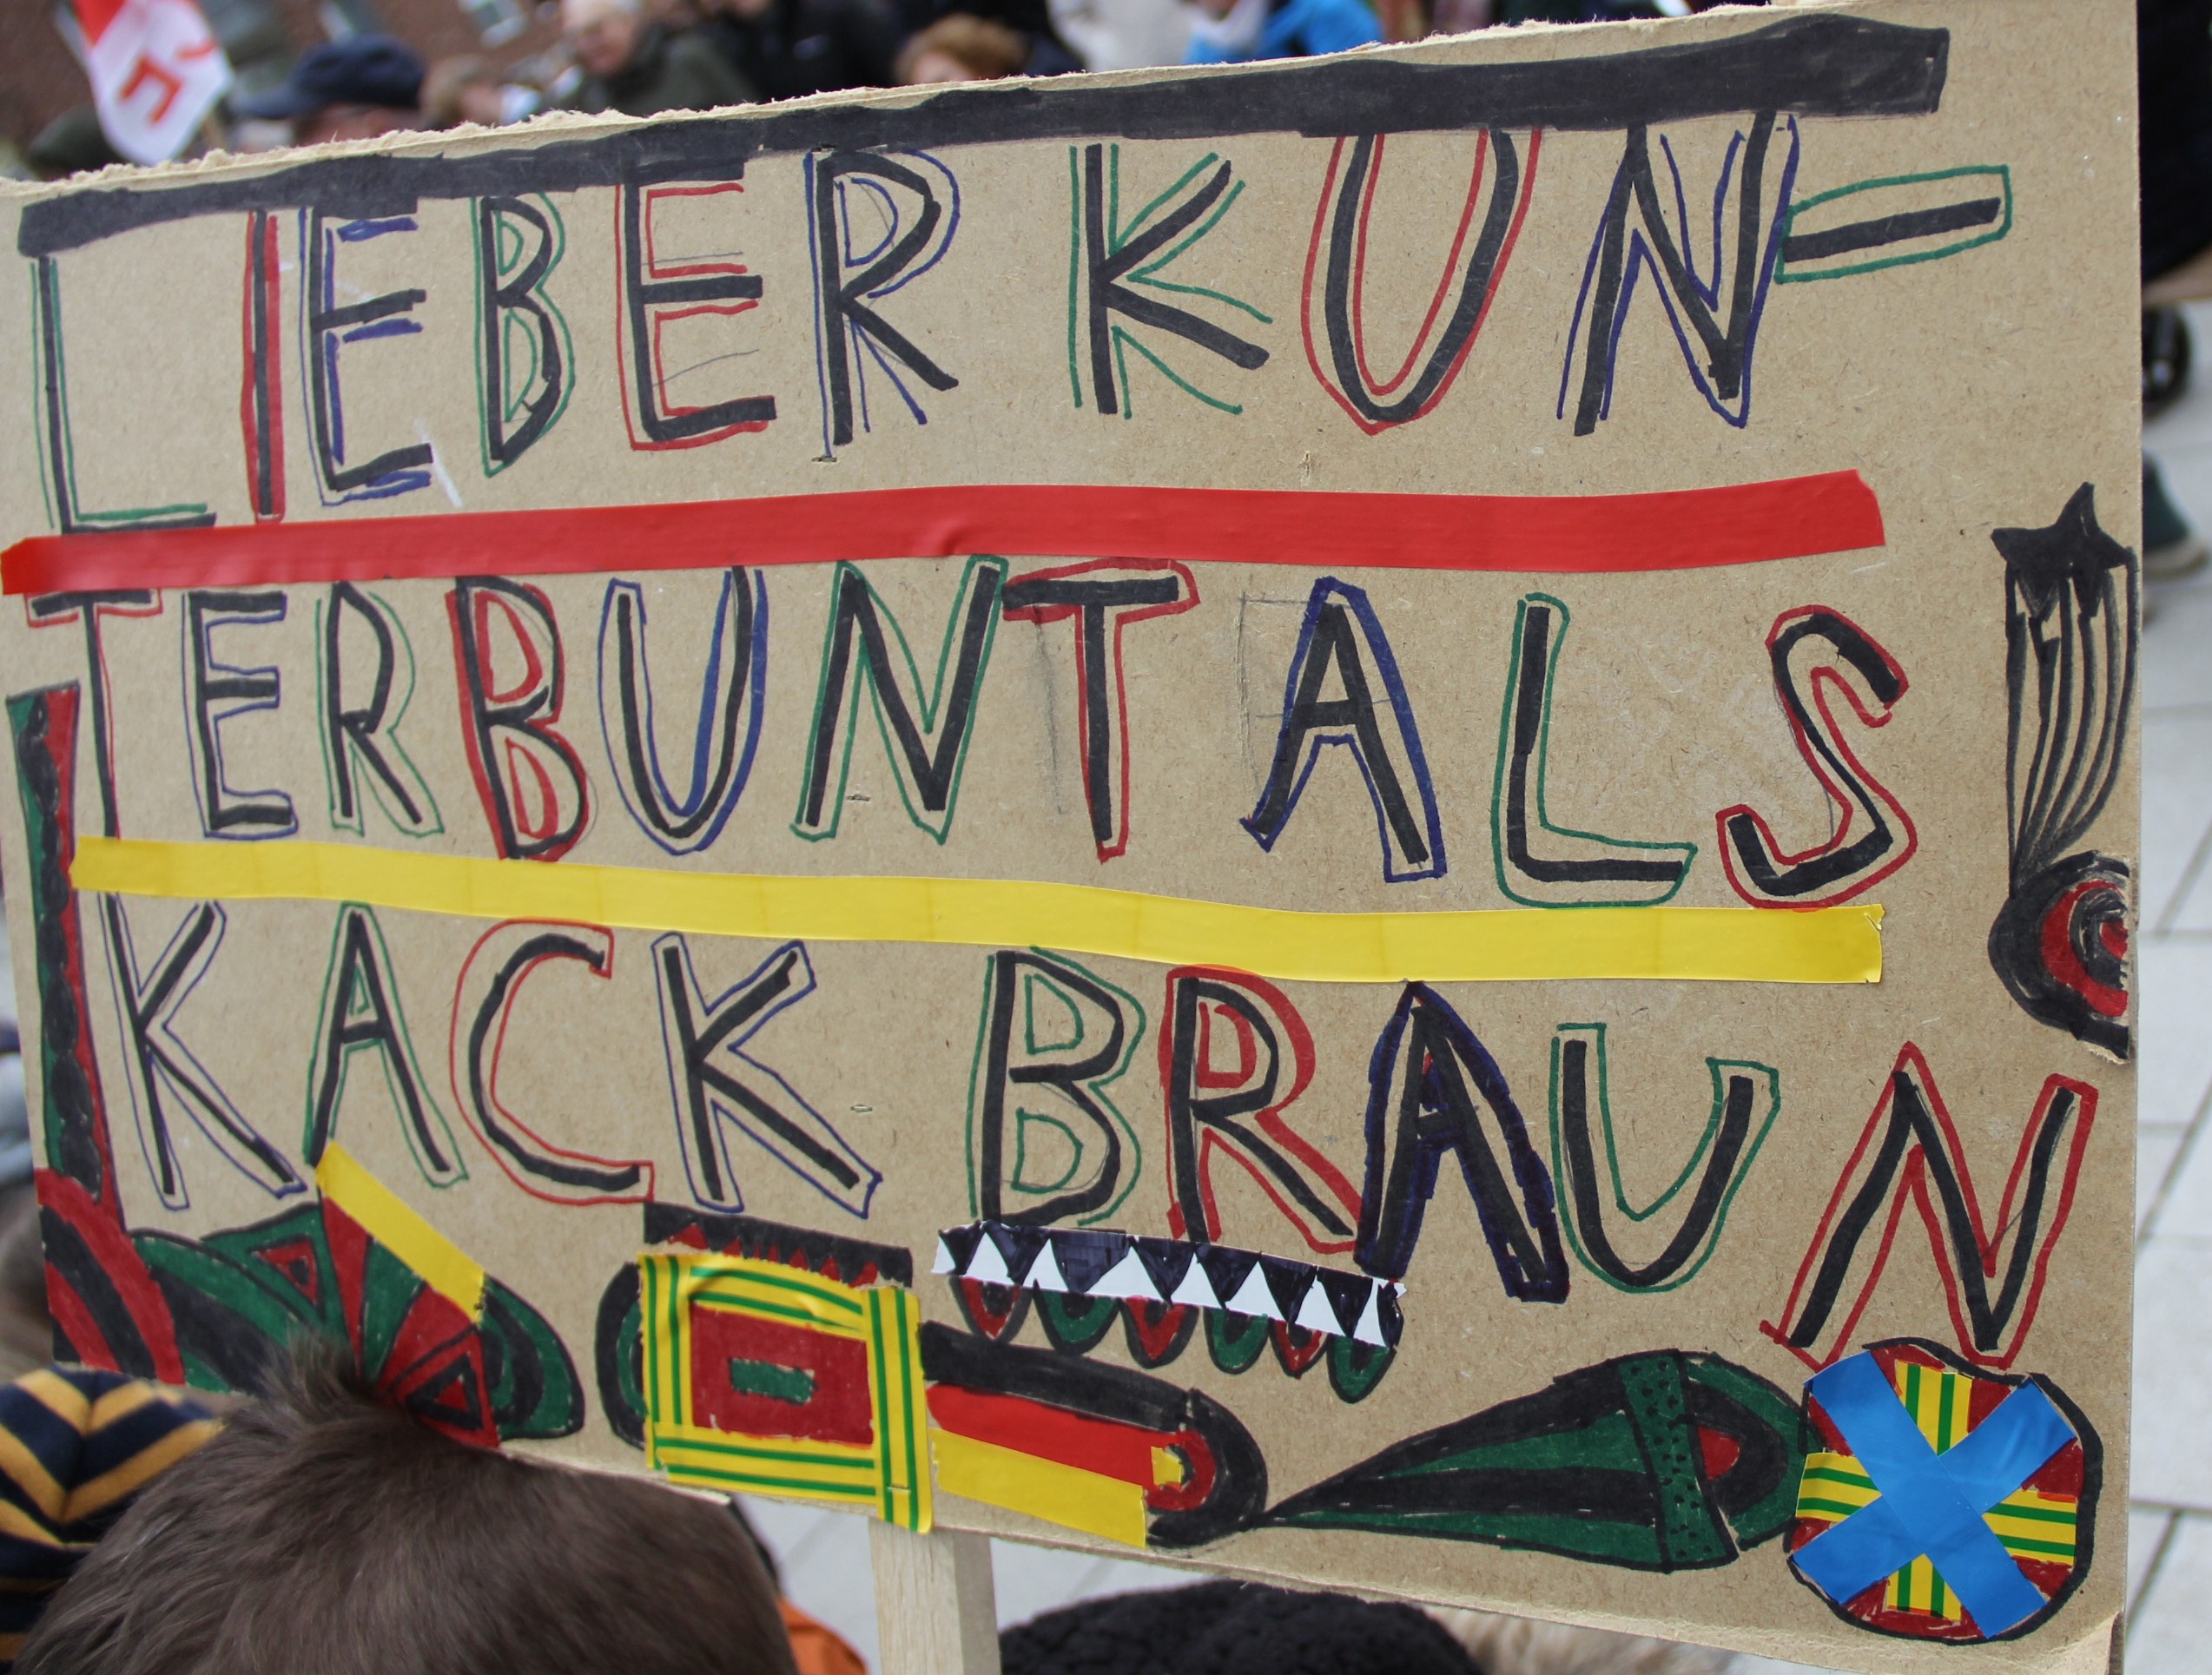 LIEBER KUN-
TERBUNT ALS
KACK BRAUN